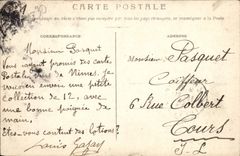 CARTE POSTALE
CORRESPONDANCE
ADRESSE
Monsieur Pasquet
Vous ayant promis des cartes
Postales de Nimes, je
vous en envoie une petite
Collection de 12, avec
une bonne poignée de
main.
Etes-vous content des lotions?
Louis
Monsieur Pasquet
Coiffeur
6 Rue Colbert
Tours
I-L